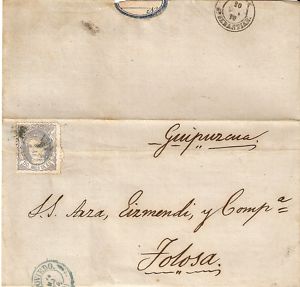 Guipuzcua.
S.S. Arza, Eizmendi, y Compª
Tolosa.
OVIEDO.